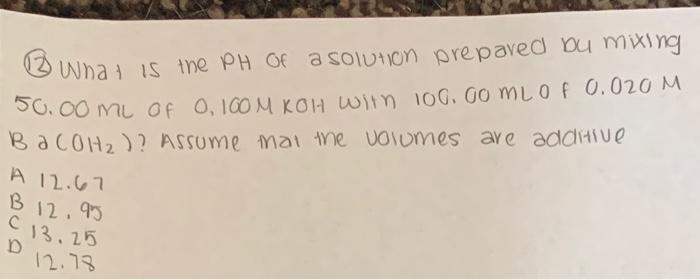 12 What is the PH of a solution prepared by mixing
50.00 mL of 0.100M KOH with 100.00 mL of 0.020 M
Ba(OH2)? Assume that the volumes are additive
A 12.67
B 12.95
C 13.25
D 12.78